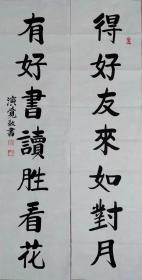 得好友來如對月
有好書讀胜看花
演覺敬書